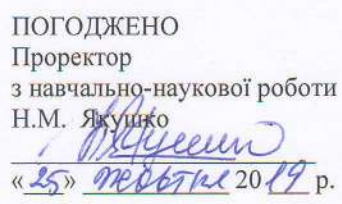 ПОГОДЖЕНО
Проректор
з навчально-наукової роботи
Н.М. Якушко
«25» жовтня 2019 р.